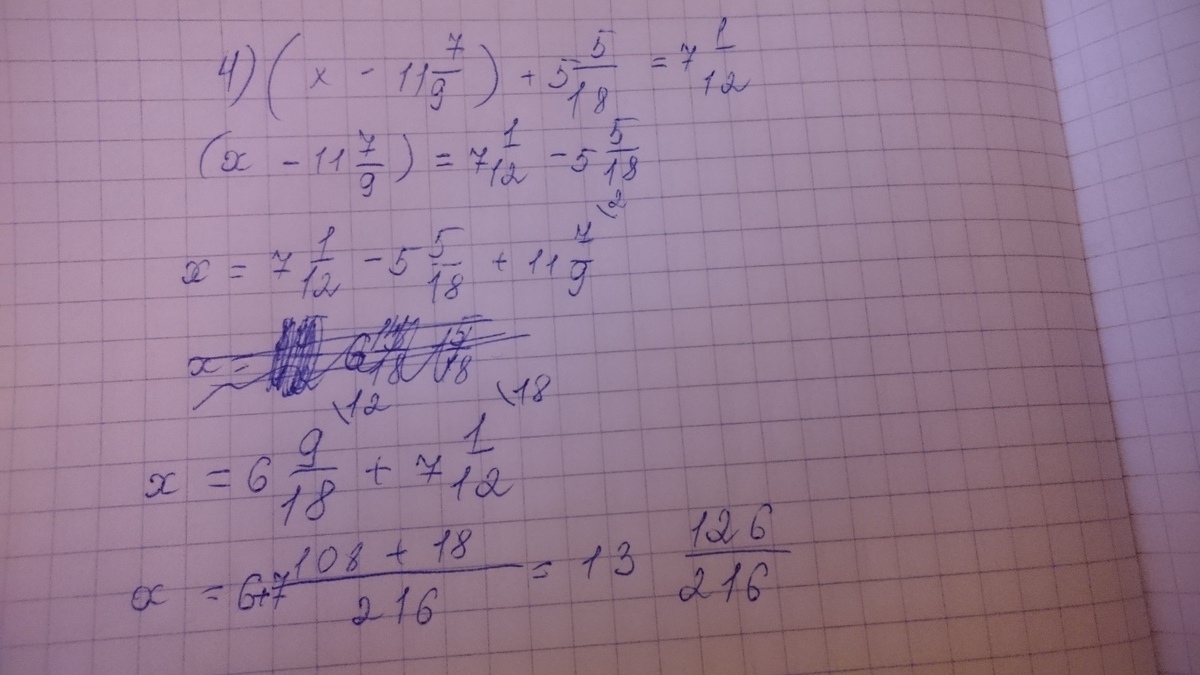 4) (x - 11 7/9) + 5 5/18 = 7 1/12
(x - 11 7/9) = 7 1/12 - 5 5/18
x = 7 1/12 - 5 5/18 + 11 7/9 \2
x = 6 9/18 \12 + 7 1/12 \18
x = 6+7 108 + 18/216 = 13 126/216